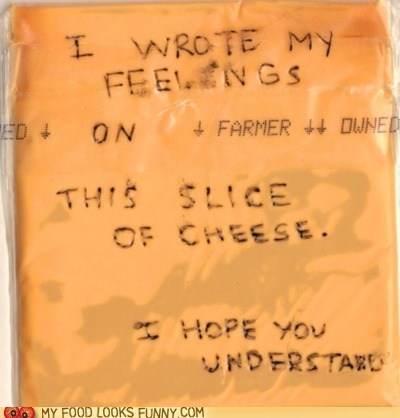 I WROTE MY
FEELINGS
ED ⏚ ON ⏚ FARMER ⏚⏚ OWNED
THIS SLICE
OF CHEESE.
I HOPE YOU
UNDERSTAND
MY FOOD LOOKS FUNNY.COM